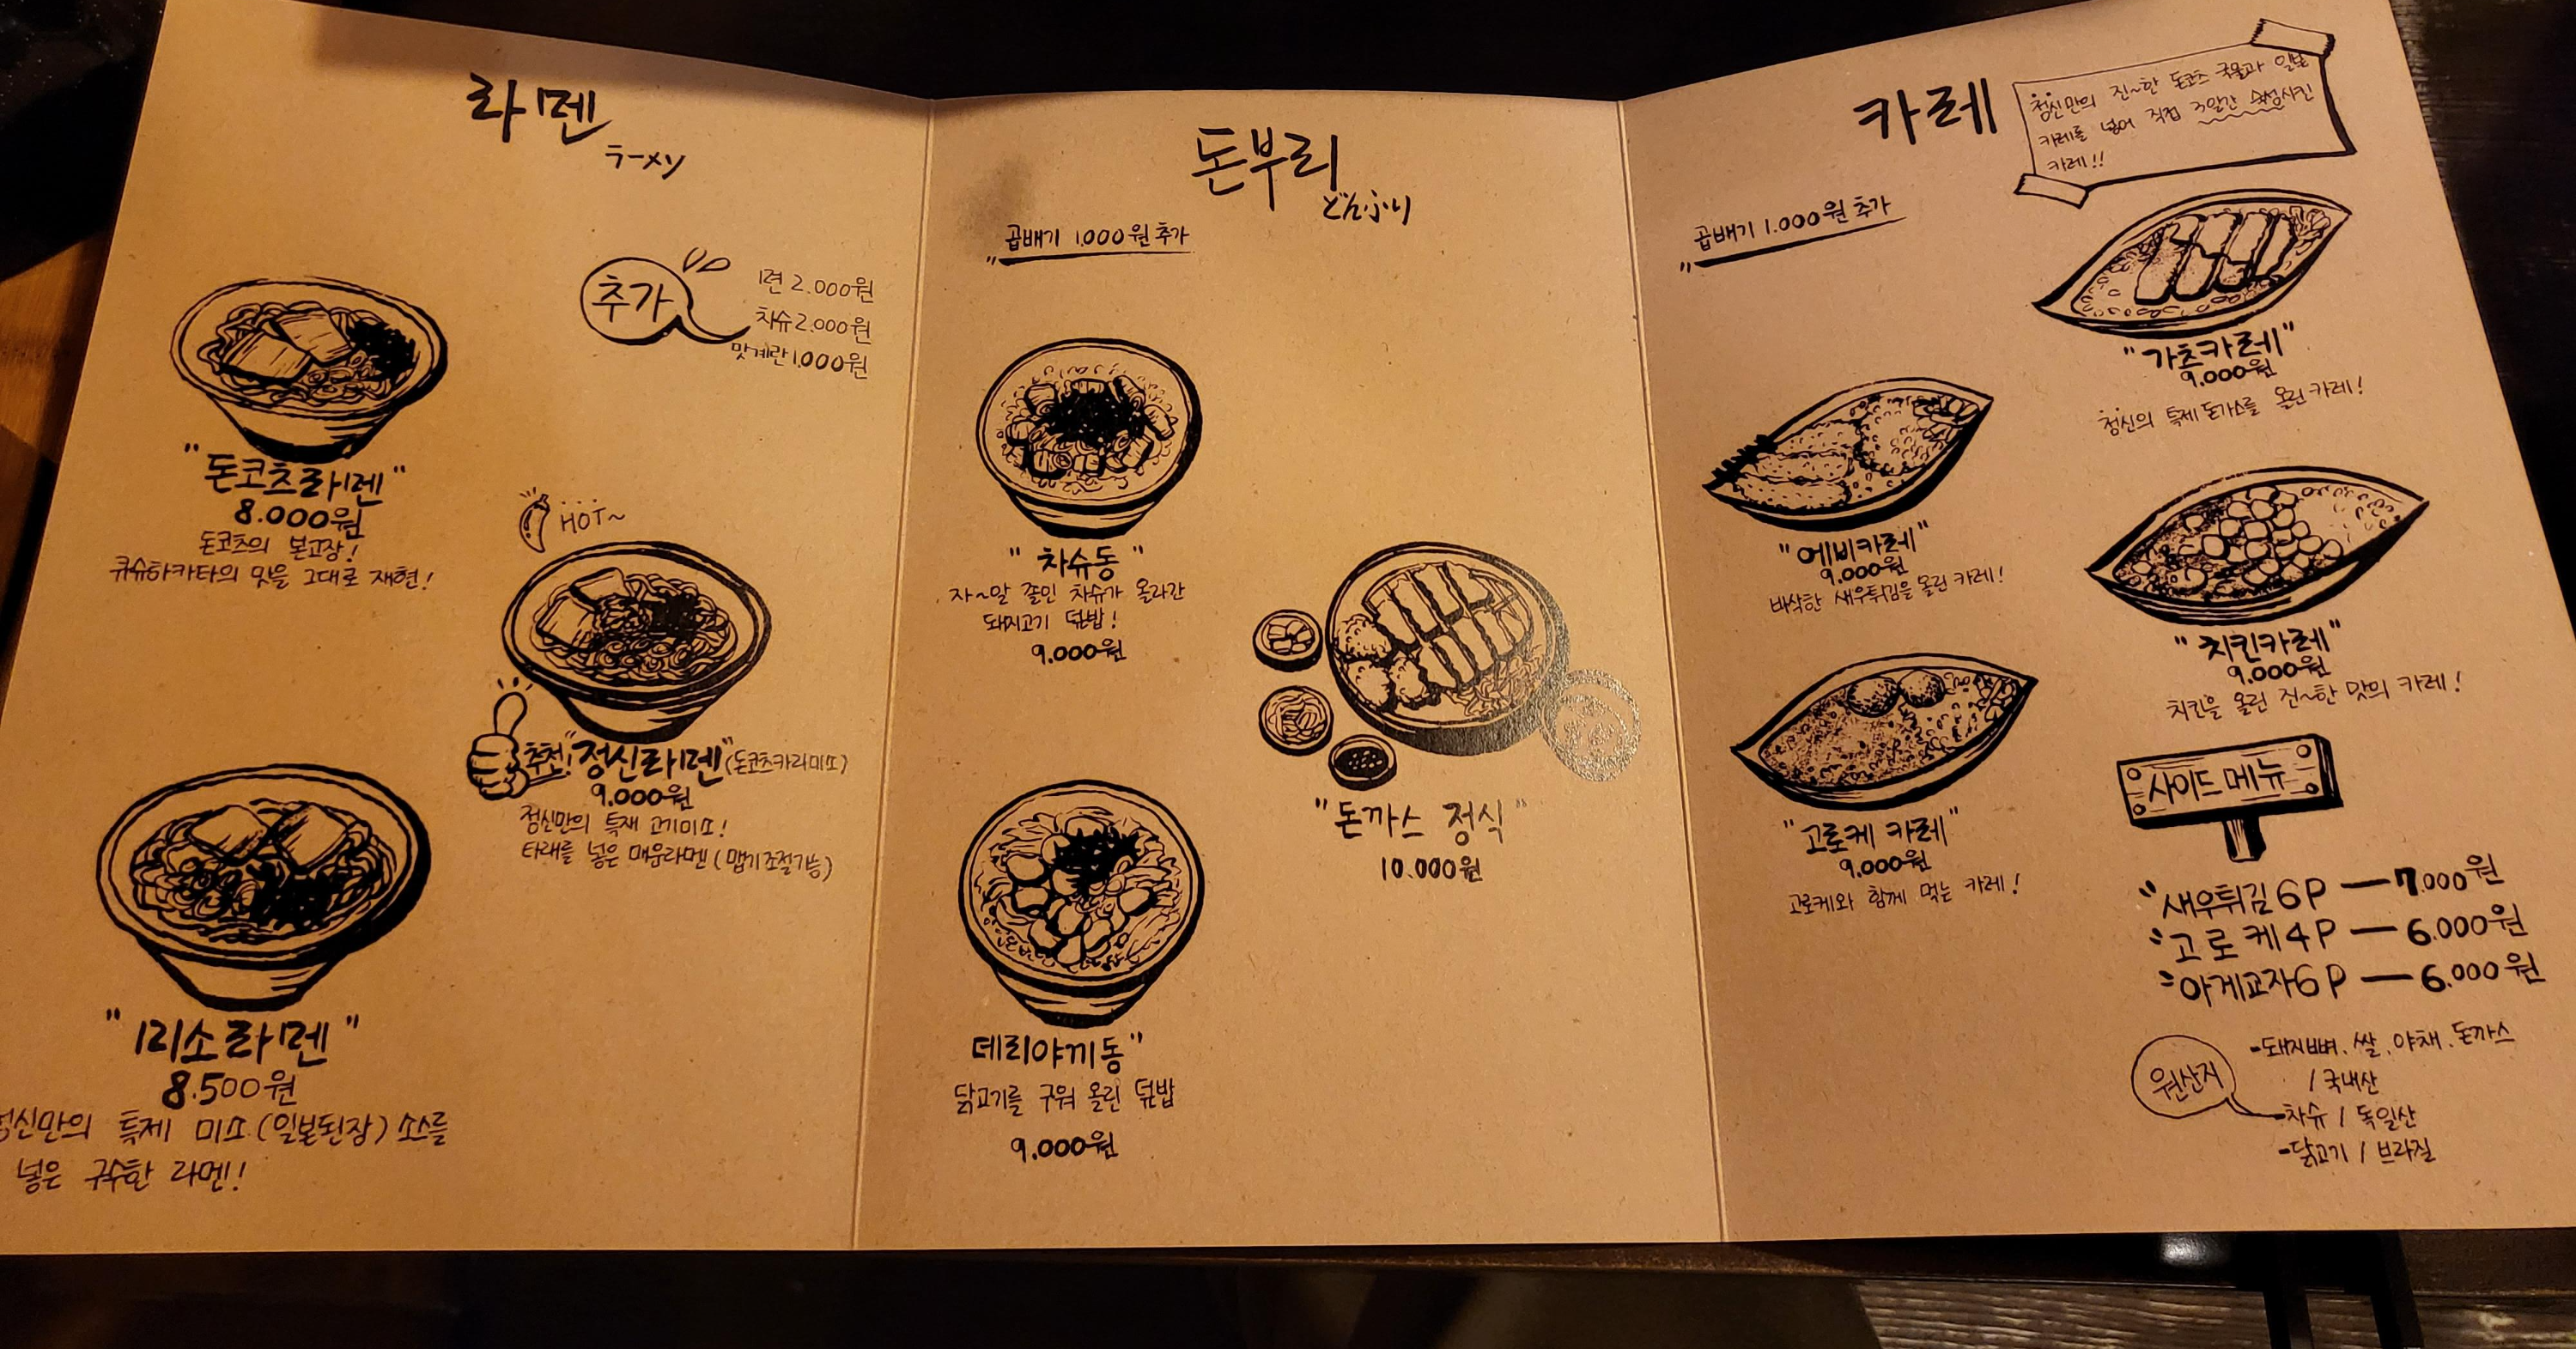 라멘
ラーメン
추가
1면 2.000원
차슈 2.000원
맛계란 1.000원
"돈코츠라멘"
8.000원
돈코츠의 본고장!
큐슈하카타의 맛을 그대로 재현!
HOT~
추천! "정신라멘" (돈코츠카라미소)
9.000원
정신만의 특재 고기미소!
타래를 넣은 매운라멘 (맵기조절가능)
"미소라멘"
8.500원
정신만의 특제 미소 (일본된장) 소스를
넣은 구수한 라멘!
돈부리
どんぶり
곱배기 1.000원 추가
"차슈동"
자~알 졸인 차슈가 올라간
돼지고기 덮밥!
9.000원
"돈까스 정식"
10.000원
데리야끼동"
닭고기를 구워 올린 덮밥
9.000원
카레
정신만의 진~한 돈코츠 국물과 일본
카레를 넣어 직접 3일간 숙성시킨
카레!!
곱배기 1.000원 추가
"가츠카레"
9.000원
정신의 특제 돈가스를 올린 카레!
"에비카레"
9.000원
바삭한 새우튀김을 올린 카레!
"치킨카레"
9.000원
치킨을 올린 진~한 맛의 카레!
"고로케 카레"
9.000원
고로케와 함께 먹는 카레!
사이드 메뉴
새우튀김 6P — 7.000원
고로케 4P — 6.000원
아게교자 6P — 6.000원
원산지
-돼지뼈. 쌀. 야채. 돈까스
/ 국내산
-차슈 / 독일산
-닭고기 / 브라질